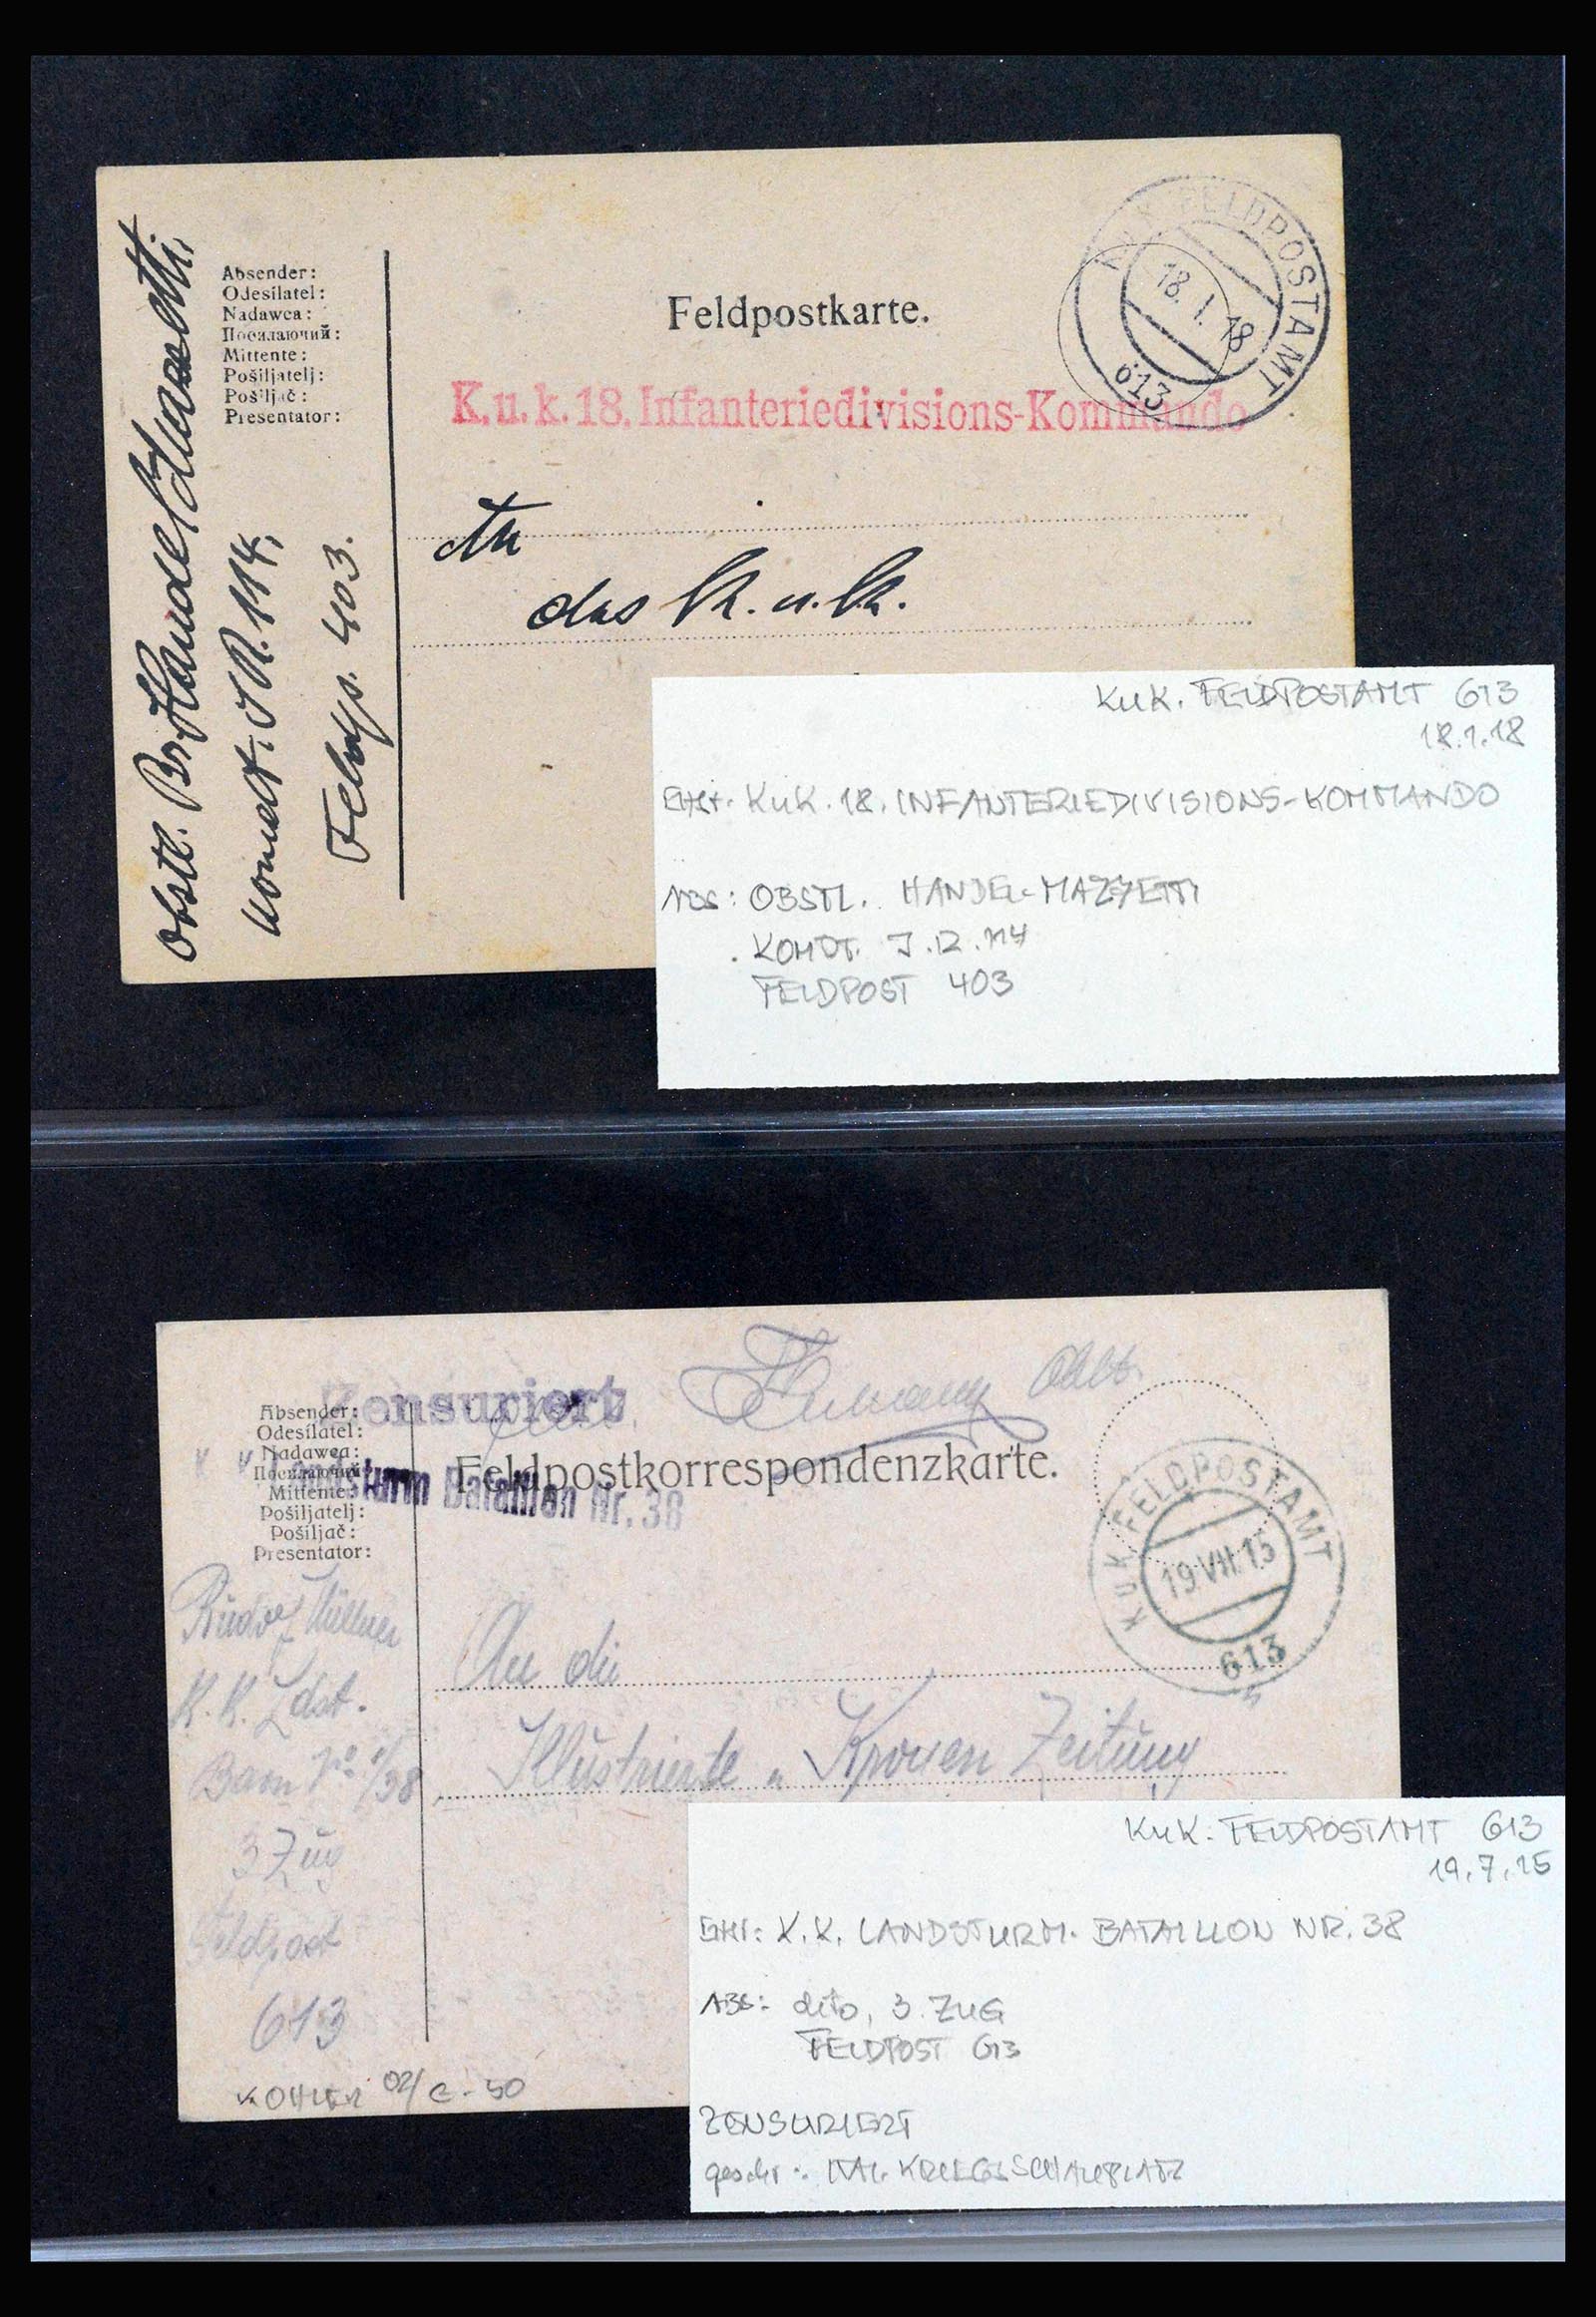 Absender:
Odesílatel:
Nadawca:
Посилаючий:
Mittente:
Pošiljatelj:
Pošiljač:
Presentator:
Obstl. Br. Handel Mazzetti,
Komdt. I.R. 114,
Feldp. 403.
Feldpostkarte.
K.U.K. FELDPOSTAMT
18. I. 18
613
K. u. k. 18. Infanteriedivisions-Kommando
An
das k. u. k.
KuK. FELDPOSTAMT 613
18.1.18
KuK. 18. INFANTERIEDIVISIONS-KOMMANDO
ABS: OBSTL. HANDEL-MAZZETTI
KOMDT. I.R. 114
FELDPOST 403
Zensuriert
Oblt.
Absender:
Odesílatel:
Nadawca:
Посилаючий:
Mittente:
Pošiljatelj:
Pošiljač:
Presentator:
Feldpostkorrespondenzkarte.
K. K. Landsturm Bataillon Nr. 38
K.U.K. FELDPOSTAMT
19 VII 15
613
Rudolf
K. K. Ldst.
Baon No 1/38
3 Zug
Feldpost
613
An die
Illustrierte Kronen Zeitung
KOHLER 02/ € -50
KuK. FELDPOSTAMT 613
19.7.15
K.K. LANDSTURM. BATAILLON NR. 38
ABS: dito, 3. ZUG
FELDPOST 613
ZENSURIERT
geschr.: ITAL. KRIEGSSCHAUPLATZ